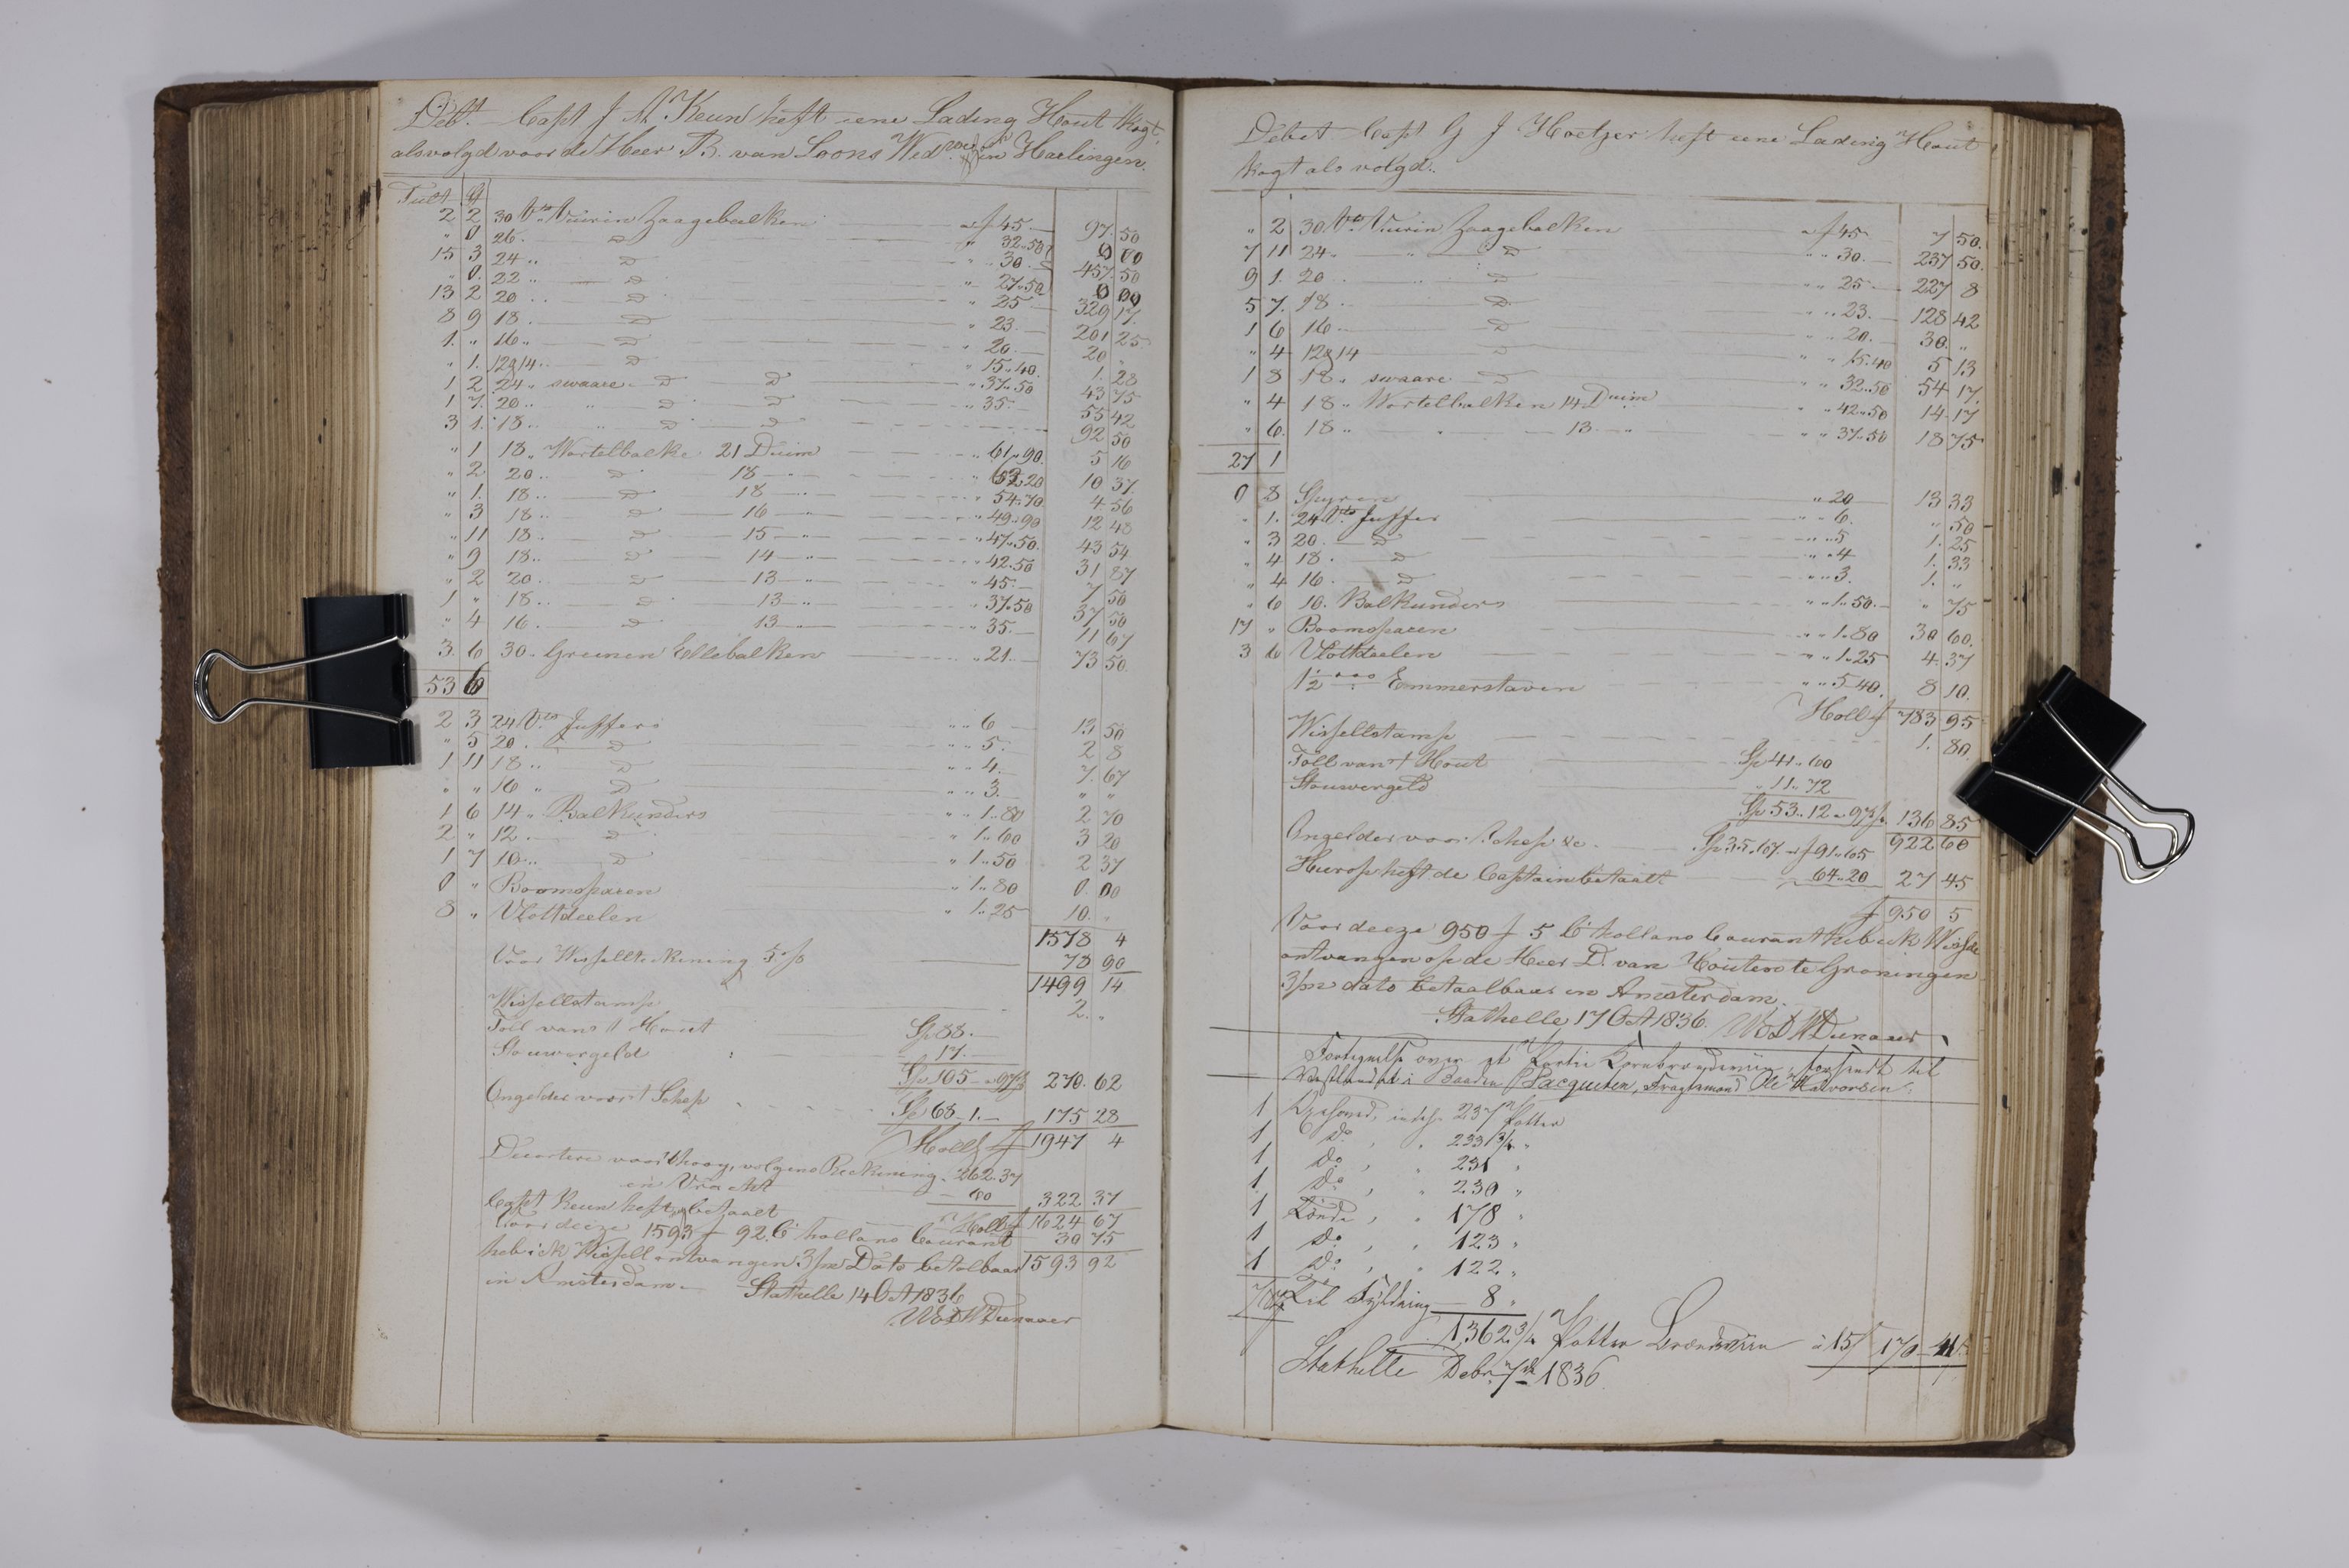 Debt. Capt J M Keun heft eene Lading Hout kogt,
als volgd voor de Heer B. van Loons Wed in Haelingen.
Tult
2 2 30 Vts Vuurin Zaagebalken a f 45 97 50
" 0 26 .. D " 32.50 0 00
15 3 24 .. D " 30. 457 50
" 0. 22 .. D " 27.50 0 00
13 2 20 .. D " 25 329 17.
8 9 18 .. D " 23. 201 25
1. " 16 .. D " 20. 20 "
" 1. 12 a 14 .. D " 15.40. 1. 28
1 2 24 " swaare D D " 37.50 43 75
1 7. 20 .. " D D " 35. 55 42
3 1. 18 .. " D D 92 50
" 1 18 .. Wortelbalke 21 Duim " 61.90. 5 16
" 2 20 .. D 18 " 62.20 10 37.
" 1. 18 .. D 18 " 54.70. 4 56
" 3 18 .. D 16 " 49.90 12 48
" 11 18 .. D 15 " 47.50. 43 54
" 9 18 .. D 14 " 42.50 31 87
" 2 20 .. D 13 " 45. 7 50
1 " 18 .. D 13 " 37.50 37 50
" 4 16 .. D 13 " 35. 11 67
3 6 30 .. Greinen Ellebalken " 21 73 50
53 6
2 3 24 Vts Juffers " " 6 13 50
" 5 20 .. D " " 5. 2 8
1 11 18 .. D " " 4. 7. 67
" " 16 " D " " 3. " "
1 6 14 " Balkunders " " 1.80 2 70
2 " 12 .. D " 1.60 3 20
1 7 10 .. D " 1.50 2 37
0 " Boomsparen " 1.80 0. 00
8 " Vlottdeelen " 1.25 10. "
1578 4
Voor Wissellrekening 5 % 78 90
1499 14
Wissellstamp 2. "
Toll vans t Hout Sp 88.
Stouwergeld 17.
Sp 105 a 97/ 270. 62
Ongelder voor t Schep Sp 68 1. 175 28
Holl f 1947 4
volgens Reckening. 262.37
en Vracht 60 322 37
Capt Keun heft betaalt Holl f 1624 67
Voor deeze 1593 f 92 C hollans Courant 30 75
heb ick Wissell ontvangen 3/m Dato betalbaar 1593 92
in Amsterdam. Stathelle 14 Oct 1836

Debet Capt G J Hoetzer heft eene Lading Hout
kogt als volgd.
" 2 30 Vts Vuurin Zaagebalken a f 45 7 50.
7 11 24 .. " D " " 30. 237 50.
9 1. 20 .. " D " " 25 227 8
5 7. 18 .. D " " 23. 128 42
1 6 16 .. D " " 20. 30. "
" 4 12 a 14 D " " 15.40 5 13
1 8 18 .. swaare D " " 32.50 54 17.
" 4 18 .. Wortelbalken 14 Duim " " 42.50 14. 17
" 6. 18 .. " 13 " " " 37.50 18 75
27 1
0 8 Spyren " 20 13 33
" 1. 24 Vts Juffer " " 6. " 50
" 3 20. D " " 5 1. 25
" 4 18. D " " 4 1. 33
" 4 16. D " " 3. 1. "
" 6 10. Balkunders " " 1.50. " 75
17 " Boomsparen " " 1.80 30 60.
3 6 Vlottdeelen " " 1.25 4. 37
1 1/2 ooo Emmerstaven " " 5 40. 8 10.
Holl f 783 95
Wissellstamp 1. 80.
Toll van t Hout Sp 41.60
Stouwergeld " 11.72
Sp 53.12 a 97/ 136 85
922 60
Ongelder voor Schep &c. Sp 35.67. f 91.65
Hierop heft de Captain betaalt 64.20 27 45
f 950 5
Voor deeze 950 f 5 C hollans Courant heb ick Wissel
ontvangen op de Heer D. van Houten te Groningen
3/m dato betaalbaar in Amsterdam.
Stathelle 17 Oct 1836.
Fortegnelse over et Partie Kornbrændeviin, forsendt til
Vestlandet i Baaden Pacqueten, Fragtemand Ole Halvorsen.
1 Oxehoved, indeh. 237 1/2 Potter
1 Do , " 233 3/4 "
1 Do , " 231 "
1. Do , " 230 "
1 Tönde , " 178 "
1 Do , " 123 "
1 Do , " 122 "
Til Fyldning 8 "
1362 3/4 Potter Brændeviin a 15/ 170 41
Stathelle Debr. 7de 1836